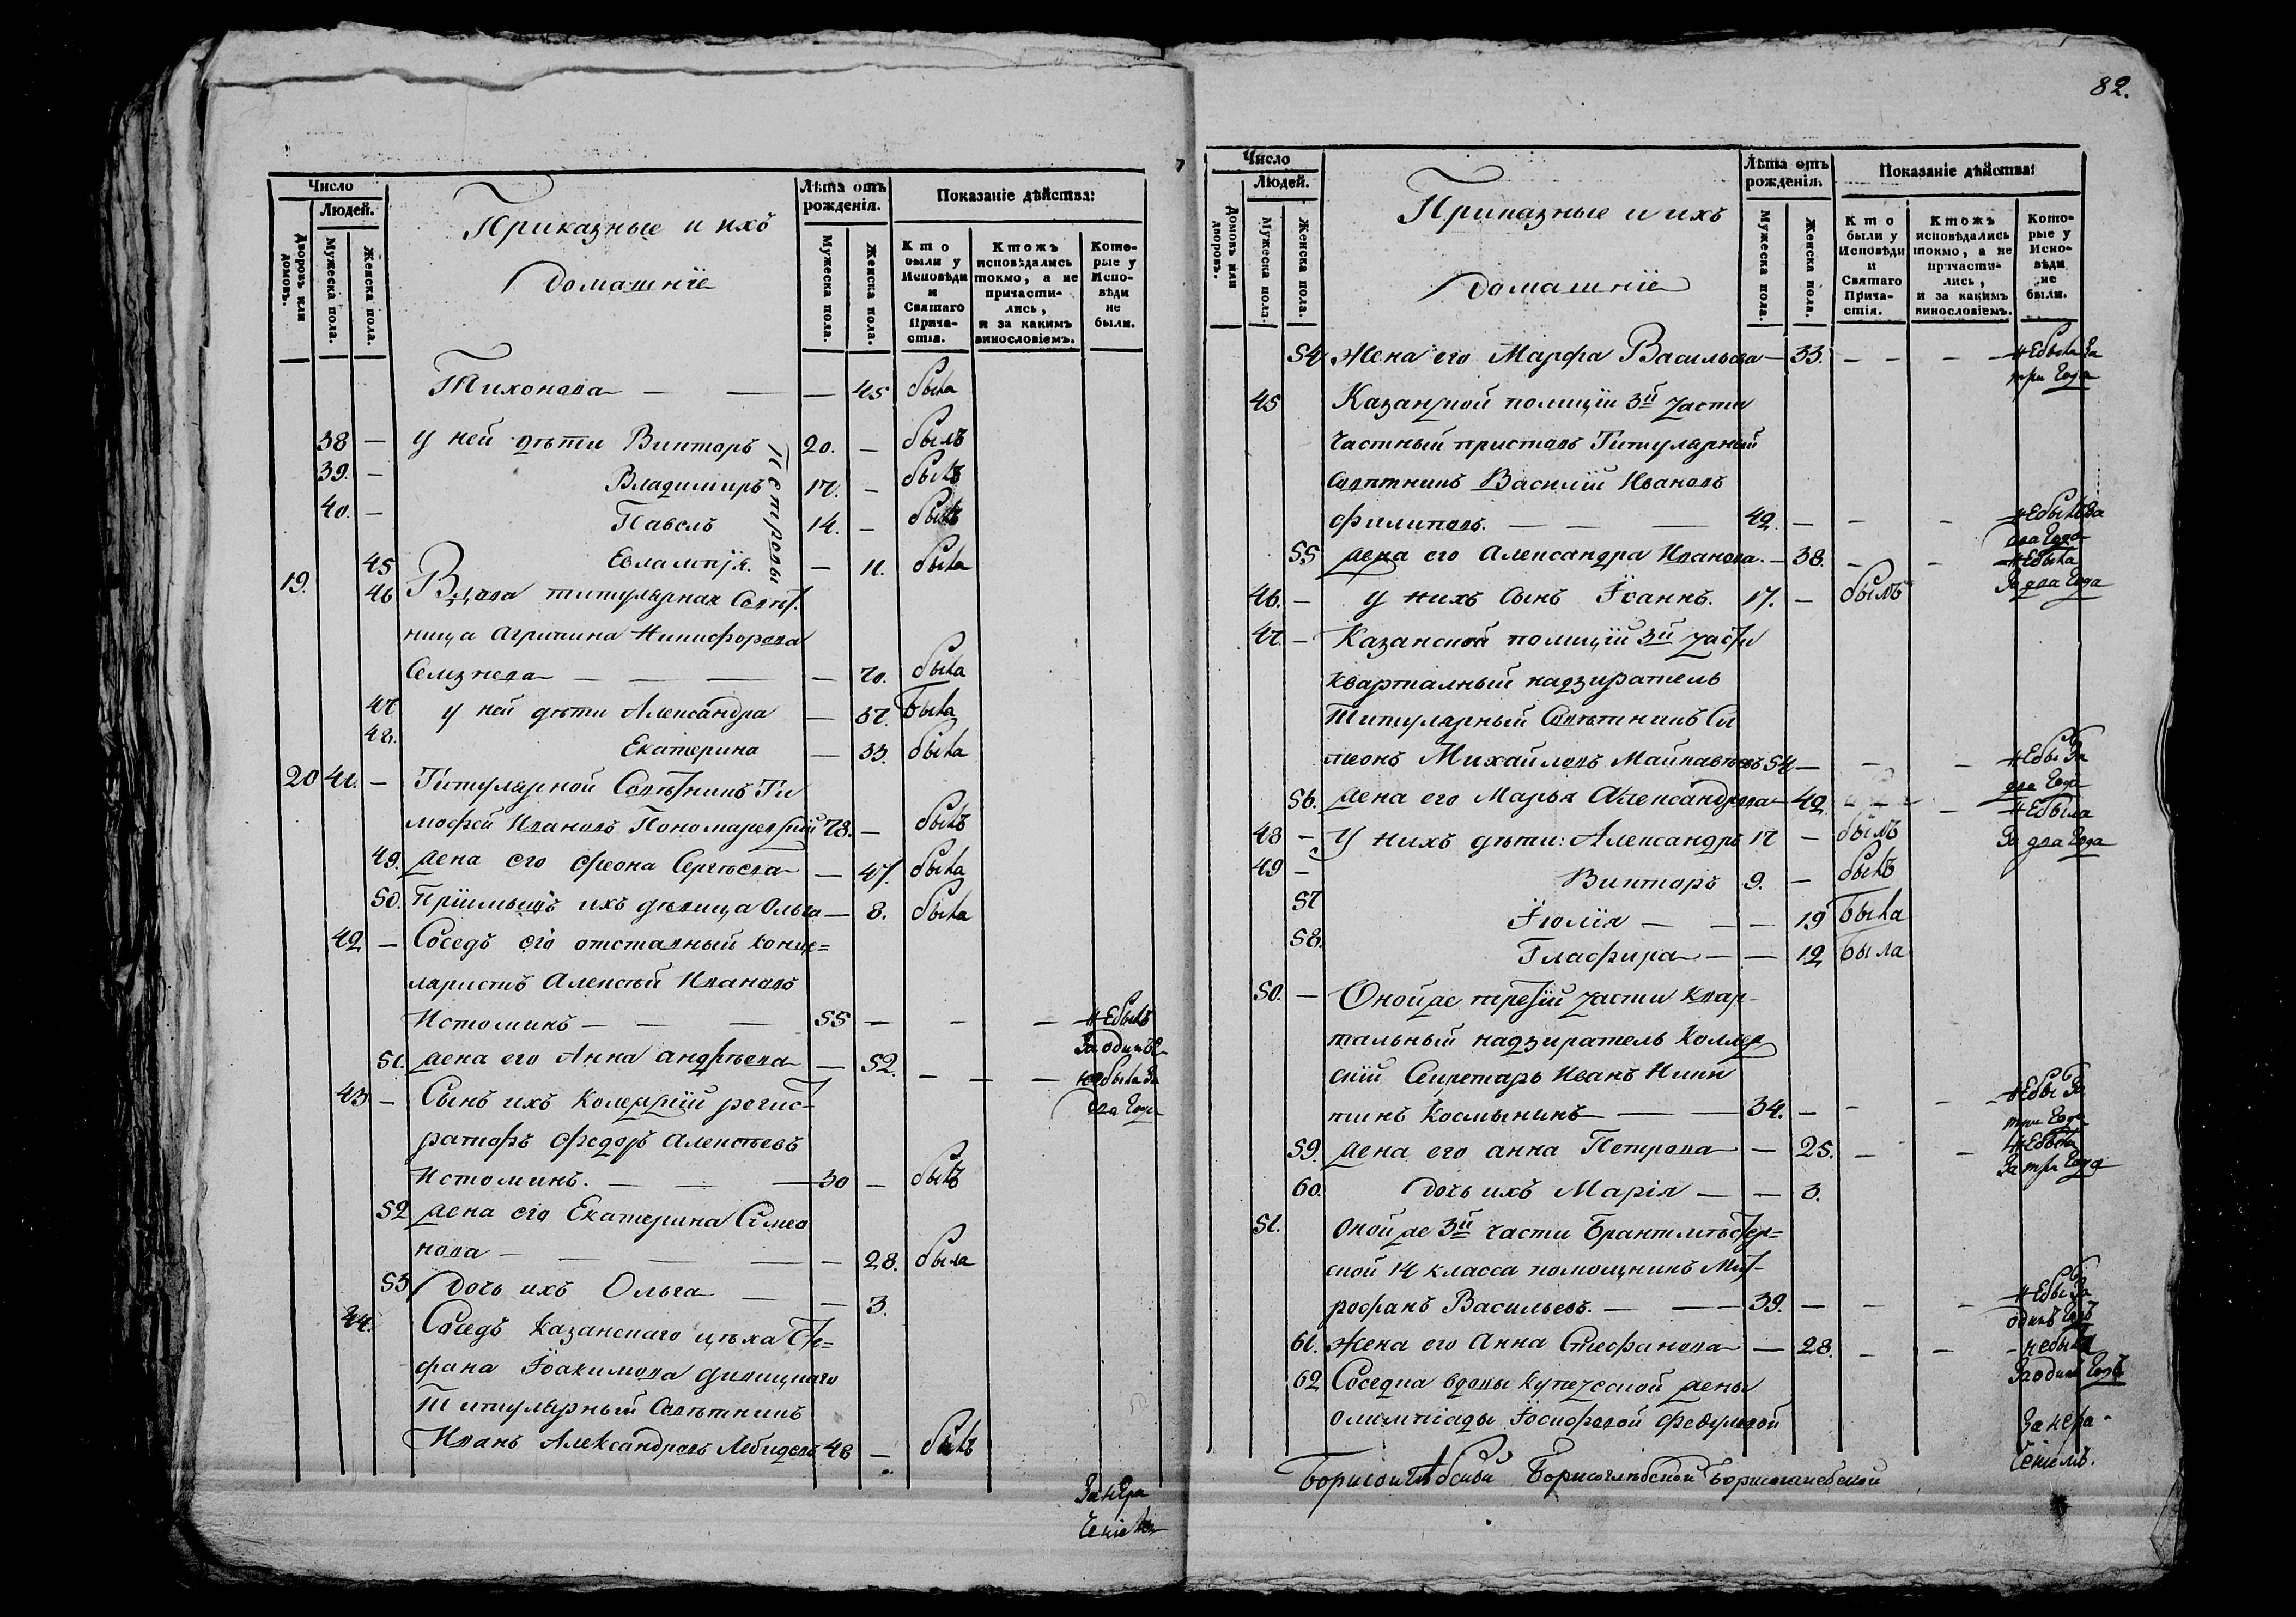 Число
Людей.
Дворовъ или домовъ.
Мужеска пола.
Женска пола.
Приказные и ихъ
Домашніе
Лѣта отъ рожденія.
Мужеска пола.
Женска пола.
Показаніе дѣйства:
Кто были у Исповѣди и Святаго Прича-стія.
Ктожъ исповѣдались токмо, а не причасти-лись, и за какимъ винословіемъ.
Кото-рые у Испо-вѣди не были.
Тихонова — — — 45 была
38 — у ней дѣти Викторъ 20. — былъ
Петровы
39. — Владимиръ 17. — былъ
40. — Павелъ 14. — былъ
45 Евлампія. — 11. была
19. 46 Вдова титулярная Совѣт
ница Агрипина Никифорова
Селезнева — — — 70. была
47 у ней дѣти Александра — 37. Была
48. Екатерина — 33. была
20 41. — Титулярной Совѣтникъ Ти
мофей Ивановъ Пономаревскій 78. — былъ
49. жена его Феона Сергѣева — 47. была
50. Пріимышъ ихъ дѣвица Ольга — 8. была
42 — Соседъ его отставный канце=
ляристъ Алексѣй Ивановъ
Истоминъ — — — 55 — — — небылъ
За одинъ
51. жена его Анна Андрѣева — 52. — — — небыла за
два года
43 — Сынъ ихъ Колежскій регис-
раторъ Федоръ Алексѣевъ
Истоминъ. — — — 30 — былъ
52 жена его Екатерина Симео
нова — — — — 28. была
53 Дочь ихъ Ольга — — 3.
44. Соседъ Казанскаго цѣха Сте=
фана Іоакимова
Титулярный Совѣтникъ
Иванъ Александровъ Лебедевъ 48 — былъ
За нера
ченіемъ
82.
Число
Людей.
Домовъ или дворовъ.
Мужеска пола.
Женска пола.
Приказные и ихъ
Домашніе
Лѣта отъ рожденія.
Мужеска пола.
Женска пола.
Показаніе дѣйства:
Кто были у Исповѣди и Святаго Прича-стія.
Ктожъ исповѣдались токмо, а не причасти-лись, и за какимъ винословіемъ.
Кото-рые у Испо-вѣди не были.
54 Жена его Марфа Васильева — 33. — — — — небыла За
три года
45 Казанской полиціи 3й части
Частный приставъ Титулярный
Совѣтникъ Василій Ивановъ
Филиповъ. — — — 42. — — — небылъ за
два года
55 жена его Александра Иванова. — 38. — — небыла
За два года
46. — у нихъ сынъ Іоаннъ. 17. — былъ
47. — Казанской полиціи 3й части
квартальный надзиратель
Титулярный Совѣтникъ Си
меонъ Михайловъ 54 — — — небы За
два года
56. жена его Марья Александрова — 42 — небыла
За два года
48 — У нихъ дѣти: Александръ 17 — былъ
49 — Викторъ 9. — былъ
57 Іюлія — — — 19 Была
58. Глафира — — 12 Была
50. — Онойже третій части квар-
тальный надзиратель Коллеж
скій Секретарь Иванъ Ники
тинъ Космынинъ — — 34. — — — небы За
три года
59. жена его Анна Петрова — 25. — — небыла
За три года
60. Дочь ихъ Марія — — 3.
51. Онойже 3й части Брантмейстер=
ской 14 класса помощникъ Мит-
рофанъ Васильевъ. — — 39. — — — небы За
одинъ годъ
61. Жена его Анна Стефанова — 28. — — — небыла
За одинъ годъ
62 Соседка вдовы купеческой жены
Олимпіады Іосифовой Федуловой
За нера-
ченіемъ.
Борисоглѣбской Борисоглѣбской Борисоглебской